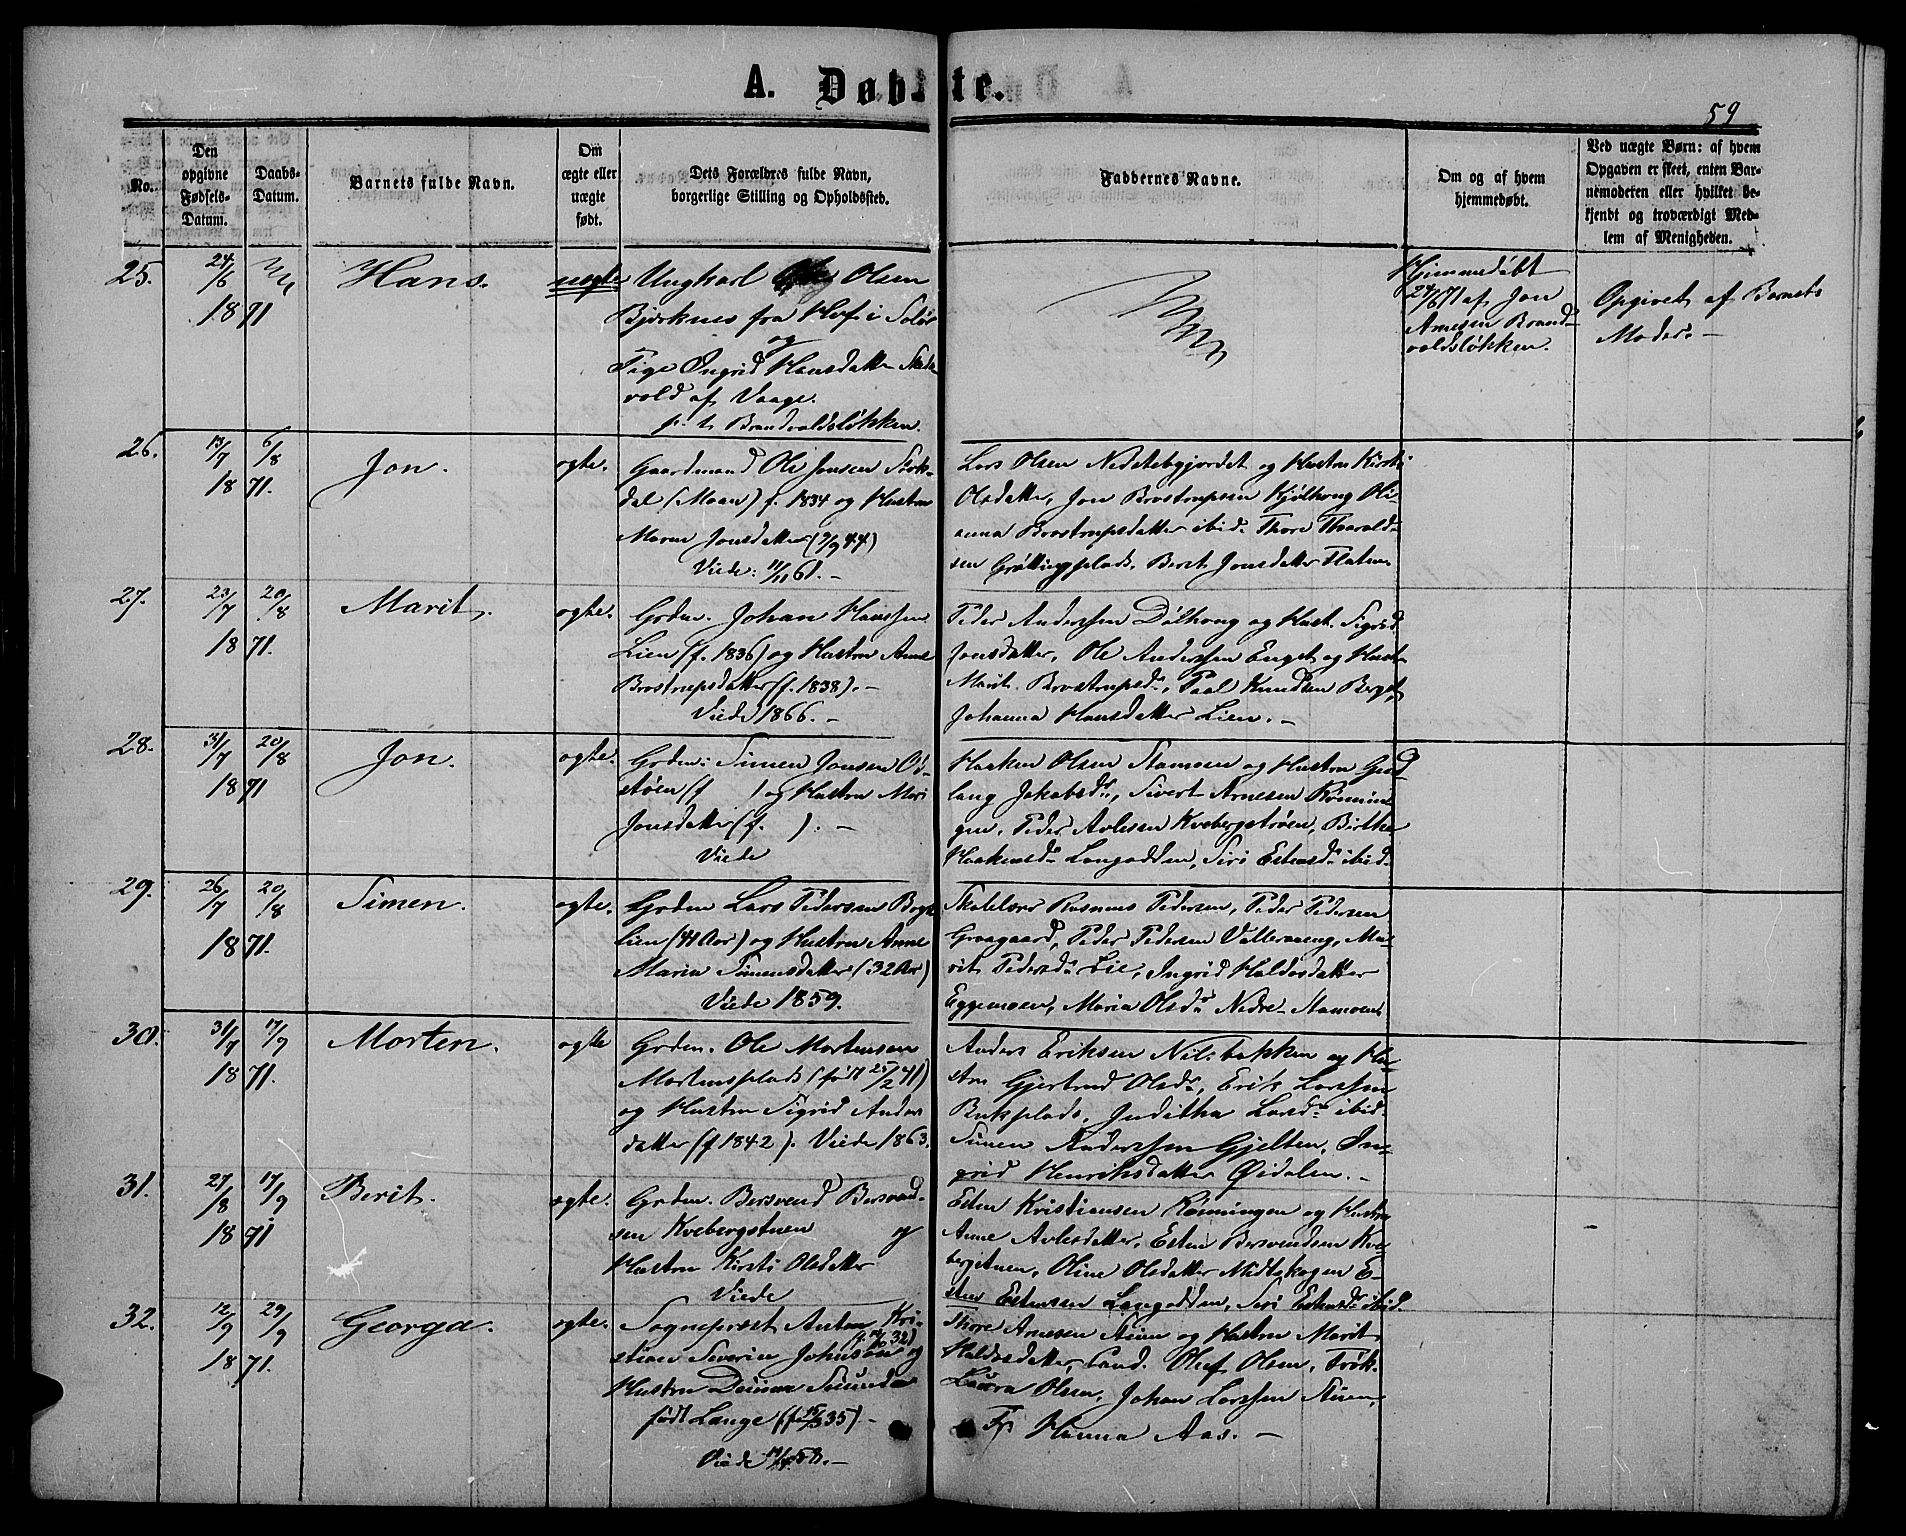 A. Døbte.
59
No.
Den opgivne Fødsels-Datum.
Daabs-Datum.
Barnets fulde Navn.
Om ægte eller uægte født.
Dets Forældres fulde Navn, borgerlige Stilling og Opholdssted.
Faddernes Navne.
Om og af hvem hjemmedøbt.
Ved uægte Børn: af hvem Opgaven er skeet, enten Barnemoderen eller hvilket bekjendt og troværdigt Medlem af Menigheden.
25. 24/6 1871
Hans.
uægte
Ungkarl Olsen
Bjørknes fra Hof i Solør
og
Pige Ingrid Hansdatter
vold af Vaage.
p. t. Brandvoldsløkken.
Hjemmedøbt
24/6 71 af Jon
Arnesen Brand-
voldsløkken.
Opgivet af Barnets
Moder. -
26. 13/7 6/8 1871.
Jon.
ægte.
Gaardmand Ole Jonsen
dal (Moan) f. 1834 og Hustru
Maren Jonsdatter (9/9 44)
Viede: 11/11 61. -
Lars Olsen og Hustru Kirsti
Olsdatter, Jon Brostrupsen Kjølhong Oli-
anna Brostrupsdatter ibid. Thore Tharald-
sen Grøttingplads. Beret Jonsdatter
27. 23/7 20/8 1871.
Marit.
ægte.
Grdm. Johan Hanssen
Lien (f. 1836) og Hustru Anne
Brostrupsdatter (f. 1838). -
Viede 1866. -
Peder Anderssen Dølhong og Hust. Sigrid
Jonsdatter, Ole Anderssen Enget og Hust.
Marit Brostrupsdr, Paal Knudsen Berget,
Johanna Hansdatter Lien. -
28. 31/7 20/8 1871
Jon.
ægte.
Grdm: Simen Jonsen
støen (f ) og Hustru Mari
Jonsdatter (f. ). -
Viede
Haaken Olsen Stamoen og Hustru Gud
lang Jakobsdr, Sivert Arnesen Rønnin-
gen, Peder Avlesen Kvebergstrøen, Birthe
Haakensdr Langodden, Siri Estensdr ibid.
29. 26/7 20/8 1871.
Simen.
ægte.
Grdm Lars Pedersen
Lien (41 Aar) og Hustru Anne
Maria Simensdatter (32 Aar)
Viede 1859.
Skolelærer Rasmus Pedersen, Peder Pedersen
Graagaard, Peder Pedersen Vollervang, Ma-
rit Pedersdr Lie, Ingrid Haldosdatter
Eggemoen, Maria Olsdr Nedre-Stamoen
30. 31/7 17/9 1871.
Morten.
ægte
Grdm. Ole Mortensen
Mortensplads (født 25/2 41)
og Hustru Sigrid Anders
datter (f 1842). Viede 1863.
Anders Eriksen Nilsbakken og Hu-
stru Gjertrud Olsdr, Erik Larssen
Juditha Larsdr ibid.
Simen Anderssen Gjelten, In-
grid Henriksdatter Øidalen. -
31. 27/8 17/9 1871
Berit.
ægte.
Grdm. Bersvend Bersvend-
sen Kvebergstuen og
Hustru Kirsti Olsdatter
Viede
Esten Kristiansen Rønningen og Hustru
Anne Avlesdatter, Esten Bersvendsen Kve-
bergstuen, Oline Olsdatter Midtskogen E-
sten Estensen Langodden, Siri Estensdr ibid.
32. 12/9 29/9 1871.
Georga.
ægte.
Sogneprest Anton Kri-
stian Severin Johnson og
Hustru
født Lange (f. 15/3 35) -
Thore Arnesen Stuen og Hustru Marit
Haldosdatter, Cand. Oluf Olsen, Frøk.
Laura Olsen, Johan Larssen Stuen,
Fr. Hanna Aas. -